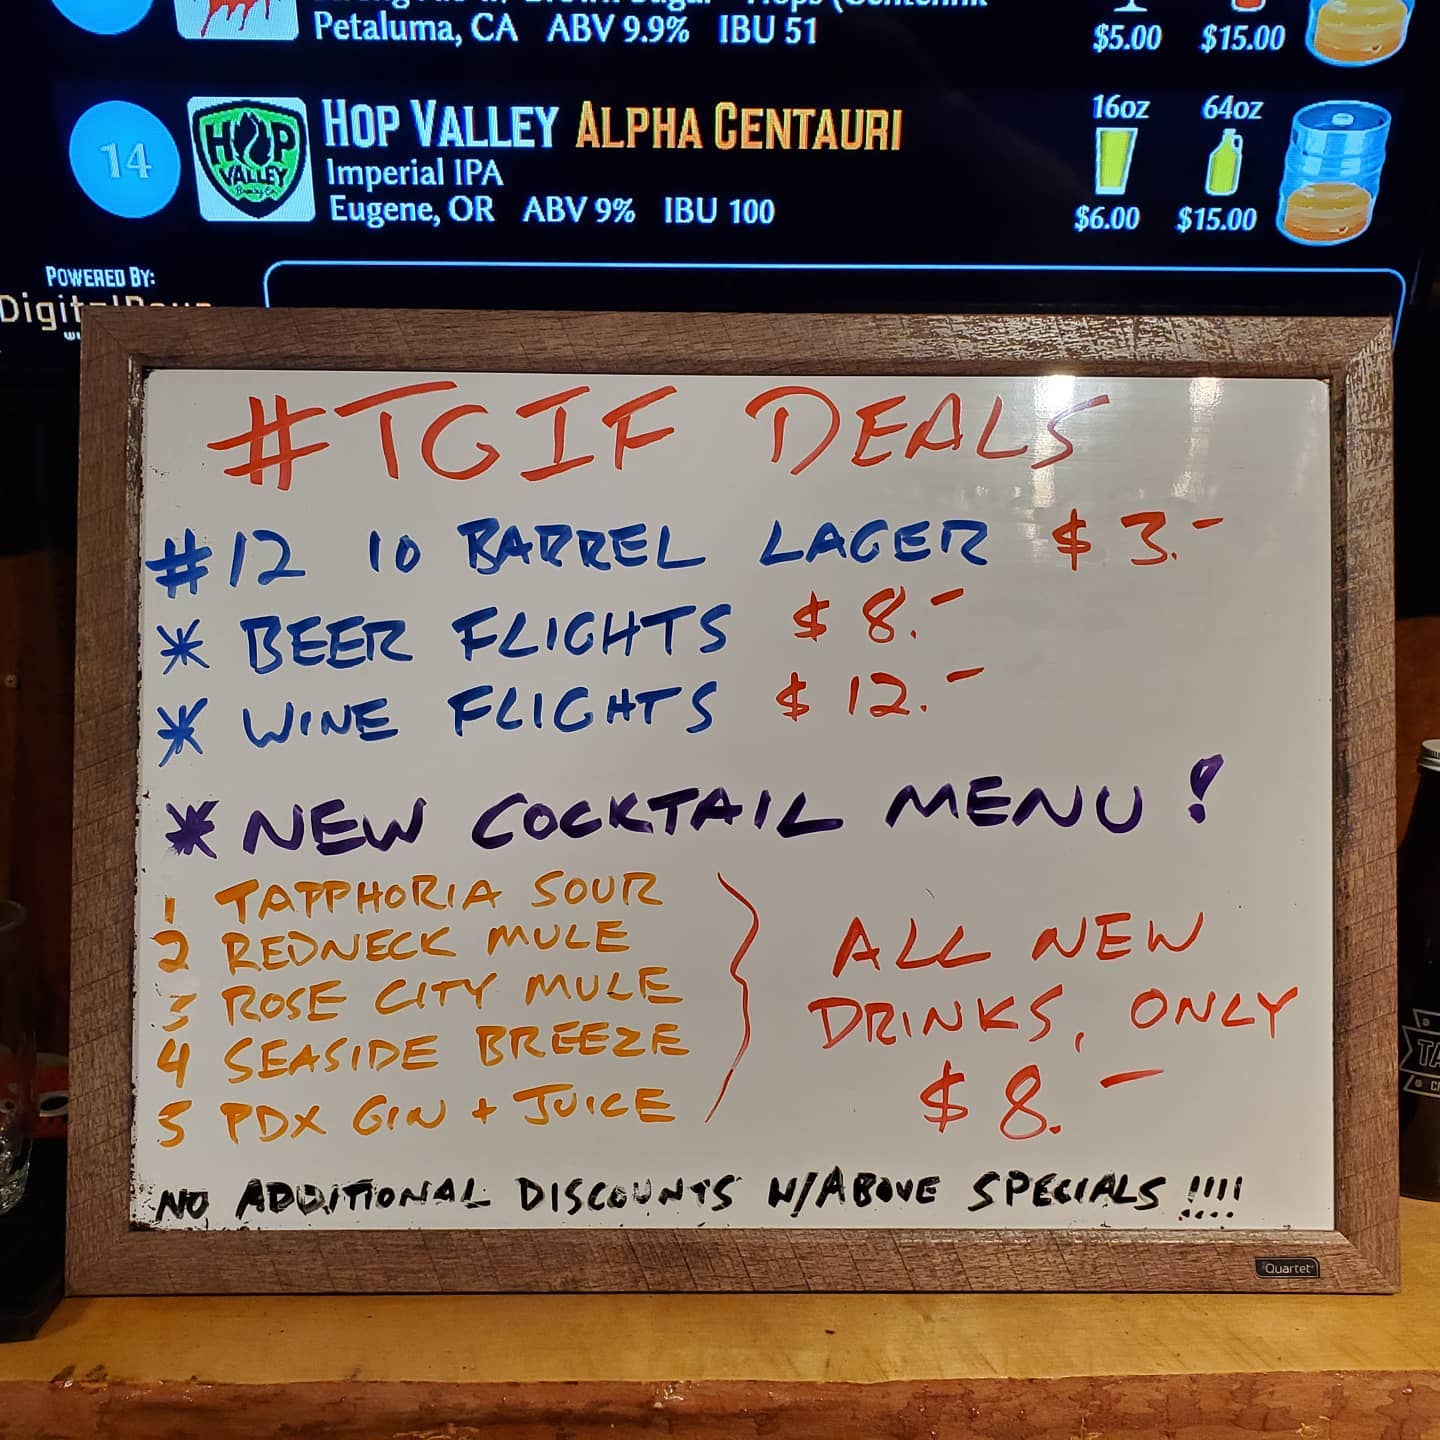 Petaluma, CA ABV 9.9% IBU 51
$5.00 $15.00
14
HOP VALLEY
HOP VALLEY ALPHA CENTAURI
Imperial IPA
Eugene, OR ABV 9% IBU 100
16oz 64oz
$6.00 $15.00
POWERED BY:
#TGIF DEALS
#12 10 BARREL LAGER $3.-
* BEER FLIGHTS $8.-
* WINE FLIGHTS $12.-
* NEW COCKTAIL MENU!
1 TAPPHORIA SOUR
2 REDNECK MULE
3 ROSE CITY MULE
4 SEASIDE BREEZE
5 PDX GIN + JUICE
ALL NEW
DRINKS, ONLY
$8.-
NO ADDITIONAL DISCOUNTS W/ABOVE SPECIALS !!!!
Quartet